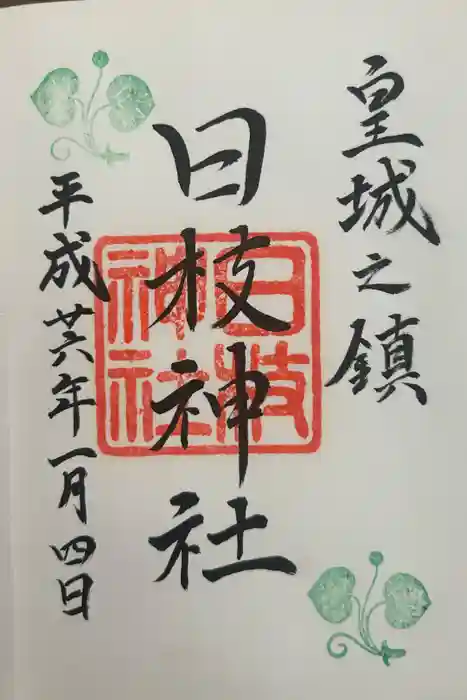 皇城之鎮
日枝神社
日枝
神社
平成廿六年一月四日